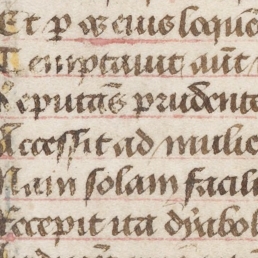 Et p os eius loquē
Temptauit aūt
Reputās prudente
Accessit ad mulie
Nam solam facil
Accepit ita dyabol